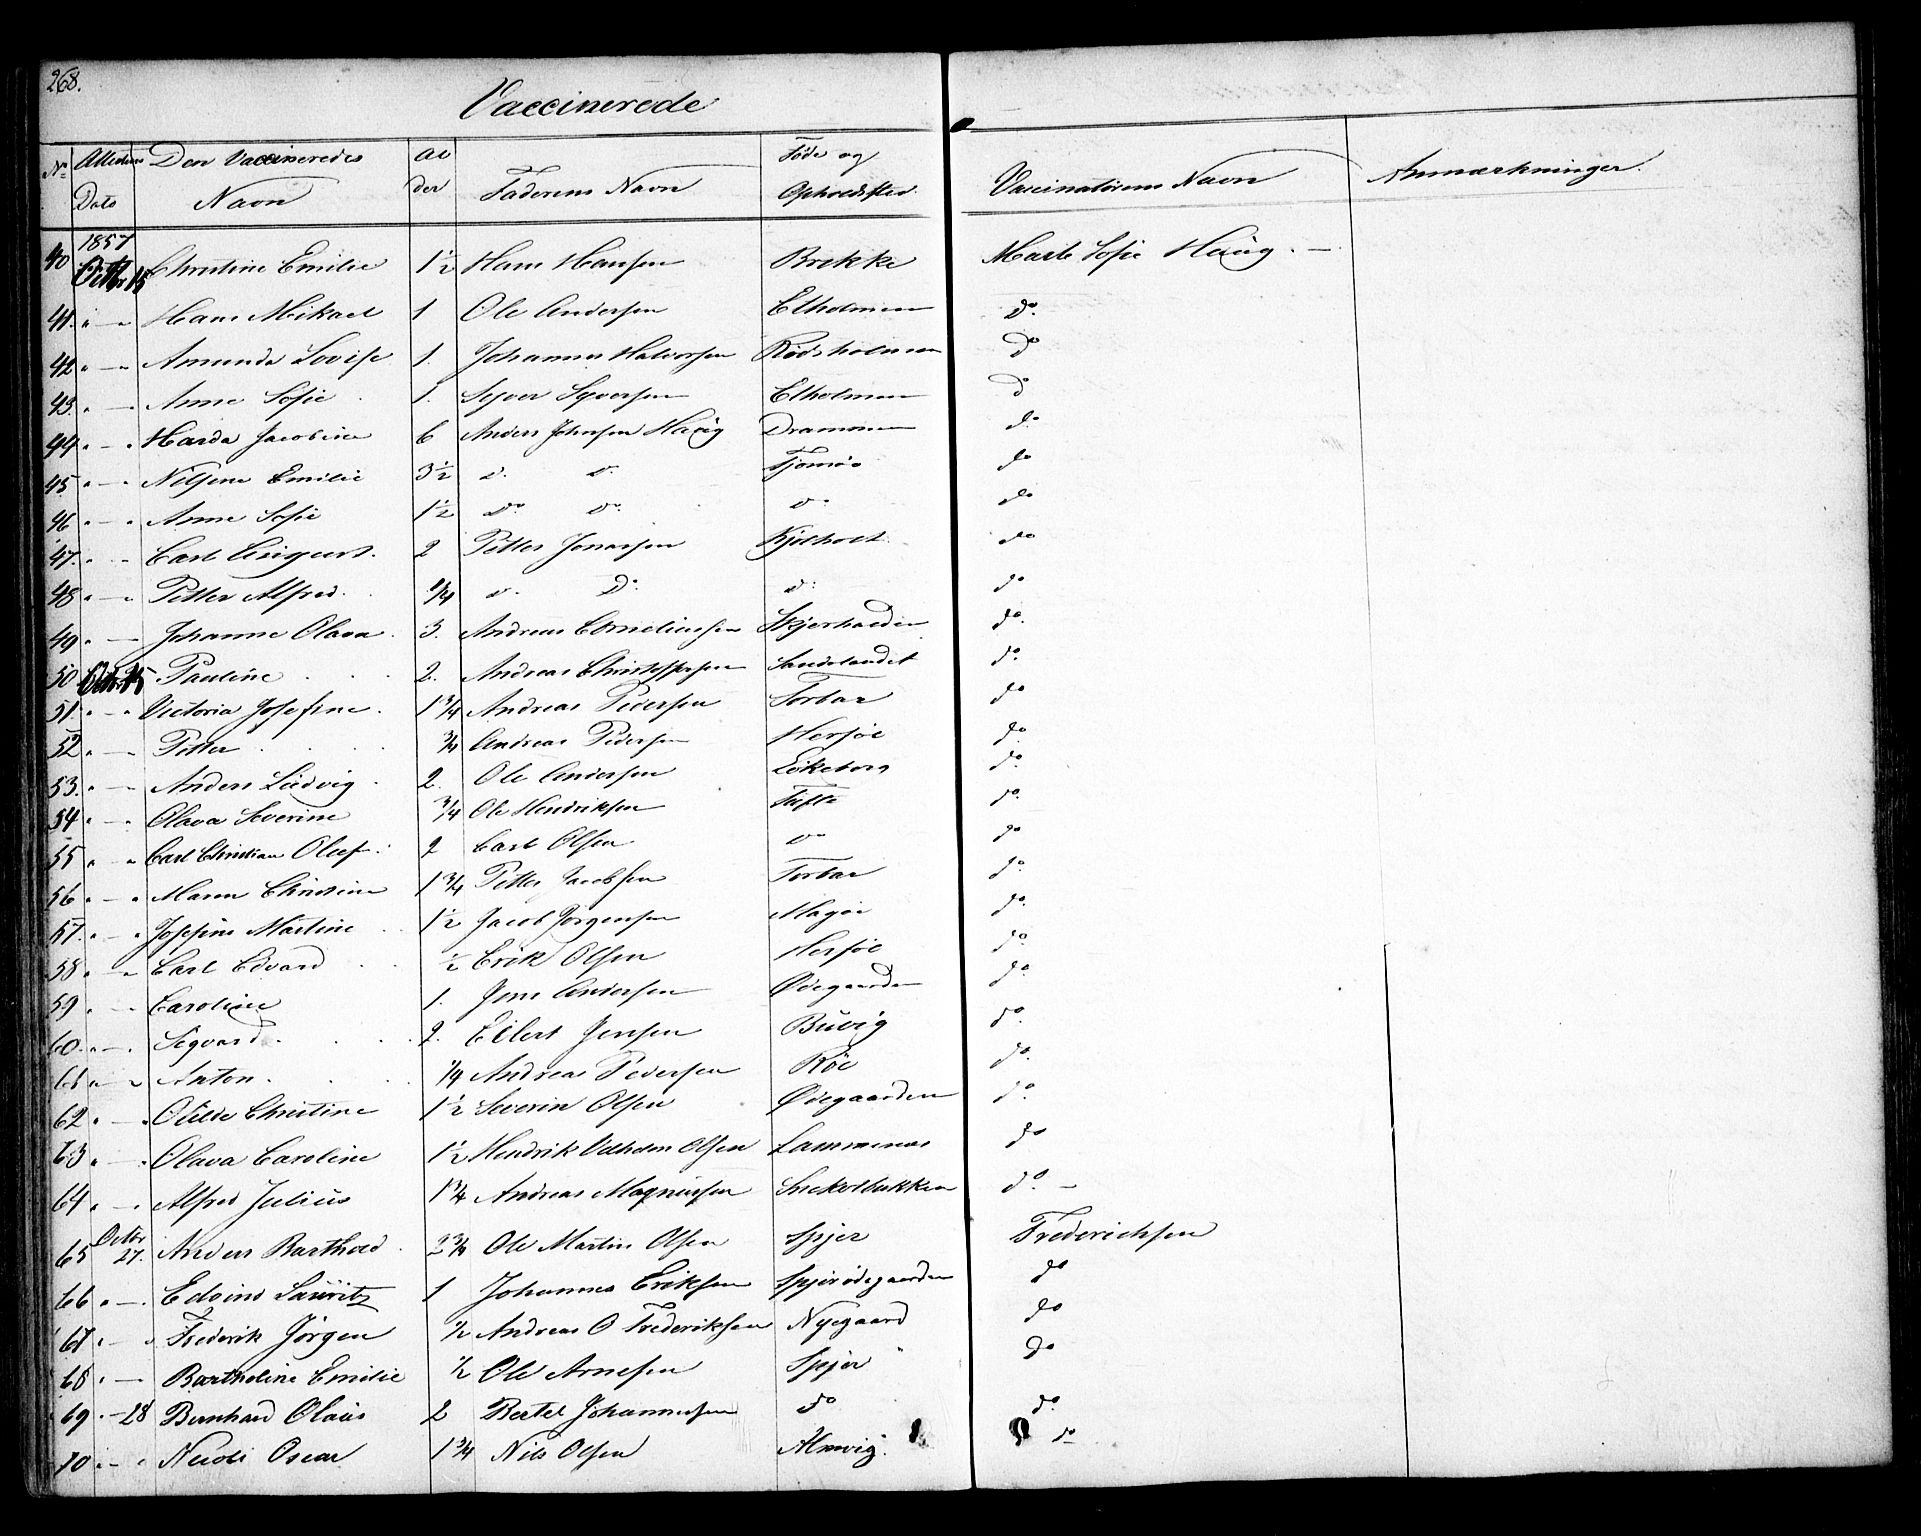 268.
Vaccinerede
No Attestens Dato Den Vaccineredes Navn Alder Faderens Navn Føde og Opholdsted Vaccinatørens Navn Anmærkninger.
1857
40 Octbr 15 Christine Emilie 1½ Hans Hansen Brekke Marte Sofie Haug. —
41. " — " Hans Mikael 1 Ole Andersen Elholmen do.
42 " — " Amunda Lovise 1. Johannes Halvorsen Rødsholmen do
43. " — " Anne Sofie 1. Syver Syversen Elholmen do
44 " — " Harda Jacobine 6 Anders Johnsen Haug Drammen do.
45 " — " Nilsine Emilie 3½ do. do. Tjømø do
46 " — " Anne Sofie 1½ do. do. do. do
47. " — " Carl August. 2 Petter Jonassen Kjøtholt do
48 " — " Petter Alfred. ¼ do. Do. do. do
49 " — Johanne Olava. 3. Andreas Corneliussen Skjerhalden do.
50 Octbr 15 Pauline 2. Andreas Christoffersen Sandelandet do.
51. " — " Victoria Josefine. 1¾ Andreas Pedersen Torbar do
52 " — Petter ¾ Andreas Pedersen Herføl do.
53. " — Anders Ludvig. 2. Ole Andersen Løkeborg do.
54 " — " Olava Severine ¾ Ole Hendriksen Tufte do.
55 " — " Carl Christian Oluf. 2 Carl Olsen do do
56 " — " Maren Christine 1¾ Petter Jacobsen Torbar do.
57. " — " Josefine Martine 1½ Jacob Jørgensen Magøe do.
58 " — " Carl Edvard ½ Erik Olsen Herføl do.
59 " — " Caroline 1. Jens Andersen Ødegaarden do.
60. " — Sigvard. 2. Eilert Jensen Buvig do.
61 " — " Anton. ¼ Andreas Pedersen Røe do.
62 " — " Otilde Christine 1½ Severin Olsen Ødegaarden do.
63 " — " Olava Caroline 1½ Hendrik Vilhelm Olsen Lammenæs do
64 " — Alfred Julius 1¼ Andreas Magnussen Snekolbakken do. —
65 Octbr 27. Anders Barthold. 2¾ Ole Martin Olsen Spjer Frederichsen
66 " — Edvind Lauritz 1 Johannes Eriksen Spjerødegaarden do
67 " — " Frederik Jørgen ½ Andreas O Frederiksen Nyegaard do
68 " — Bartholine Emilie ½ Ole Arnesen Spjer do
69 " — 28 Bernhard Olaus 2 Bertel Johannesen do do.
70 " — " Nicoli Oscar 1¾ Nils Olsen Almvig. do